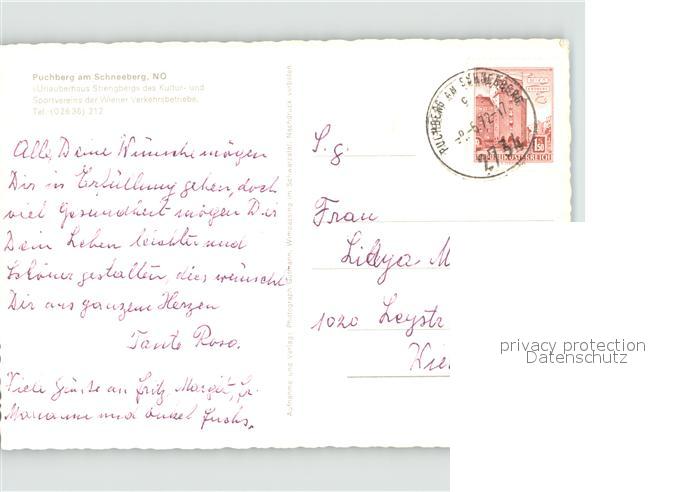 Puchberg am Schneeberg, NÖ
»Urlauberhaus Strengberg« des Kultur- und
Sportvereins der Wiener Verkehrsbetriebe,
Tel. (02636) 212
Alle Deine Wünsche mögen
Dir in Erfüllung gehen, doch
viel Gesundheit mögen Dir
Dein Leben leichter und
schöner gestalten, dies wünscht
Dir aus ganzem Herzen
Tante Rosa.
Viele Grüsse an Fritz, Margit,
Marianne und Onkel Fuchs.
Aufnahme und Verlag: Wimpassing im Schwarzatal. Nachdruck verboten
PUCHBERG AM SCHNEEBERG
2734
REPUBLIK ÖSTERREICH
1.50
S. g.
Frau
M
1020 Leystr
Wie
privacy protection
Datenschutz